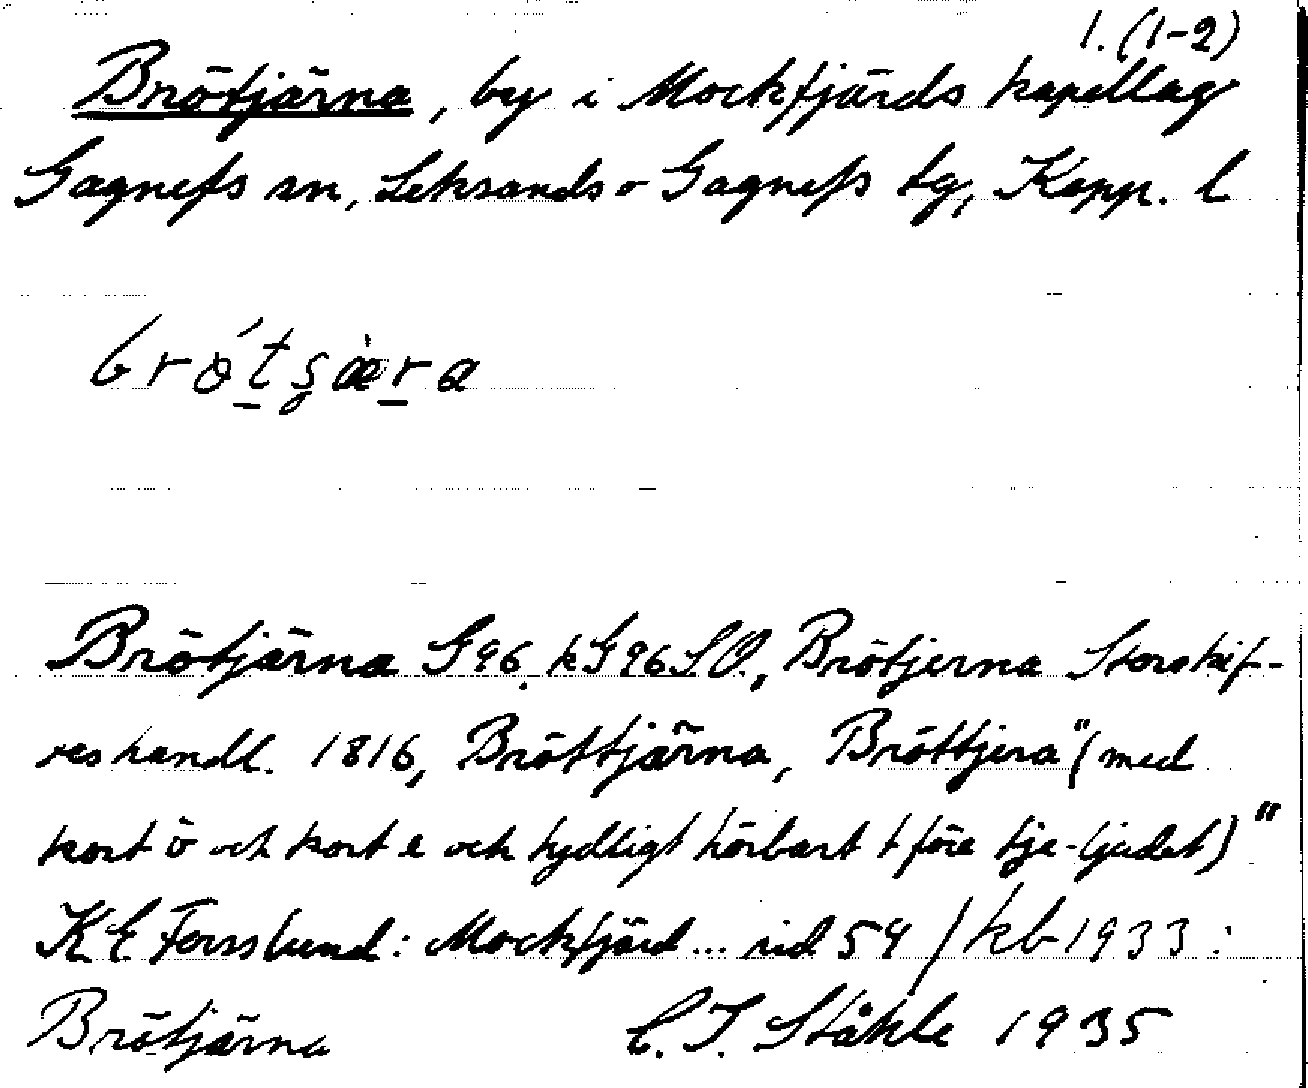 1. (1-2)
Brötjärna, by i Mockfjärds kapellag
Gagnefs sn, Leksands o Gagnefs tg, Kopp. l
brö́tʂæ̀ra
Brötjärna G96, kG96SO., Brötjerna Storskif-
reshandl. 1816, Bröttjärna, Bröttjera "(med
kort ö och kort e och tydligt hörbart t före tje-ljudet)"
K E Forsslund: Mockfjärd... sid 54 / kb 1933:
Brötjärna C. I. Ståhle 1935